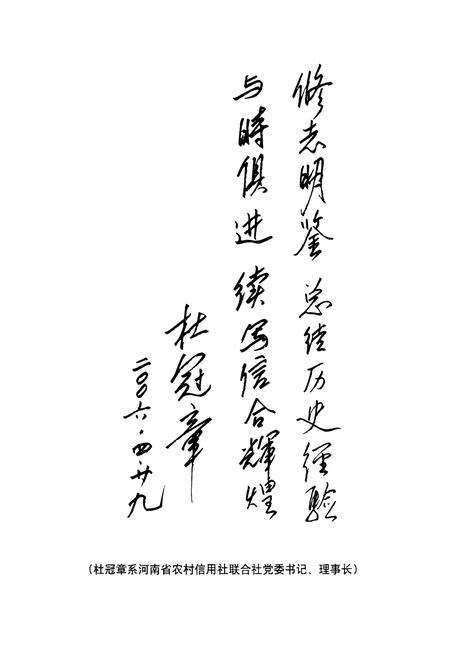 修志明鉴 总结历史经验
与时俱进 续写信合辉煌
杜冠章
二〇〇六·四·廿九
（杜冠章系河南省农村信用社联合社党委书记、理事长）